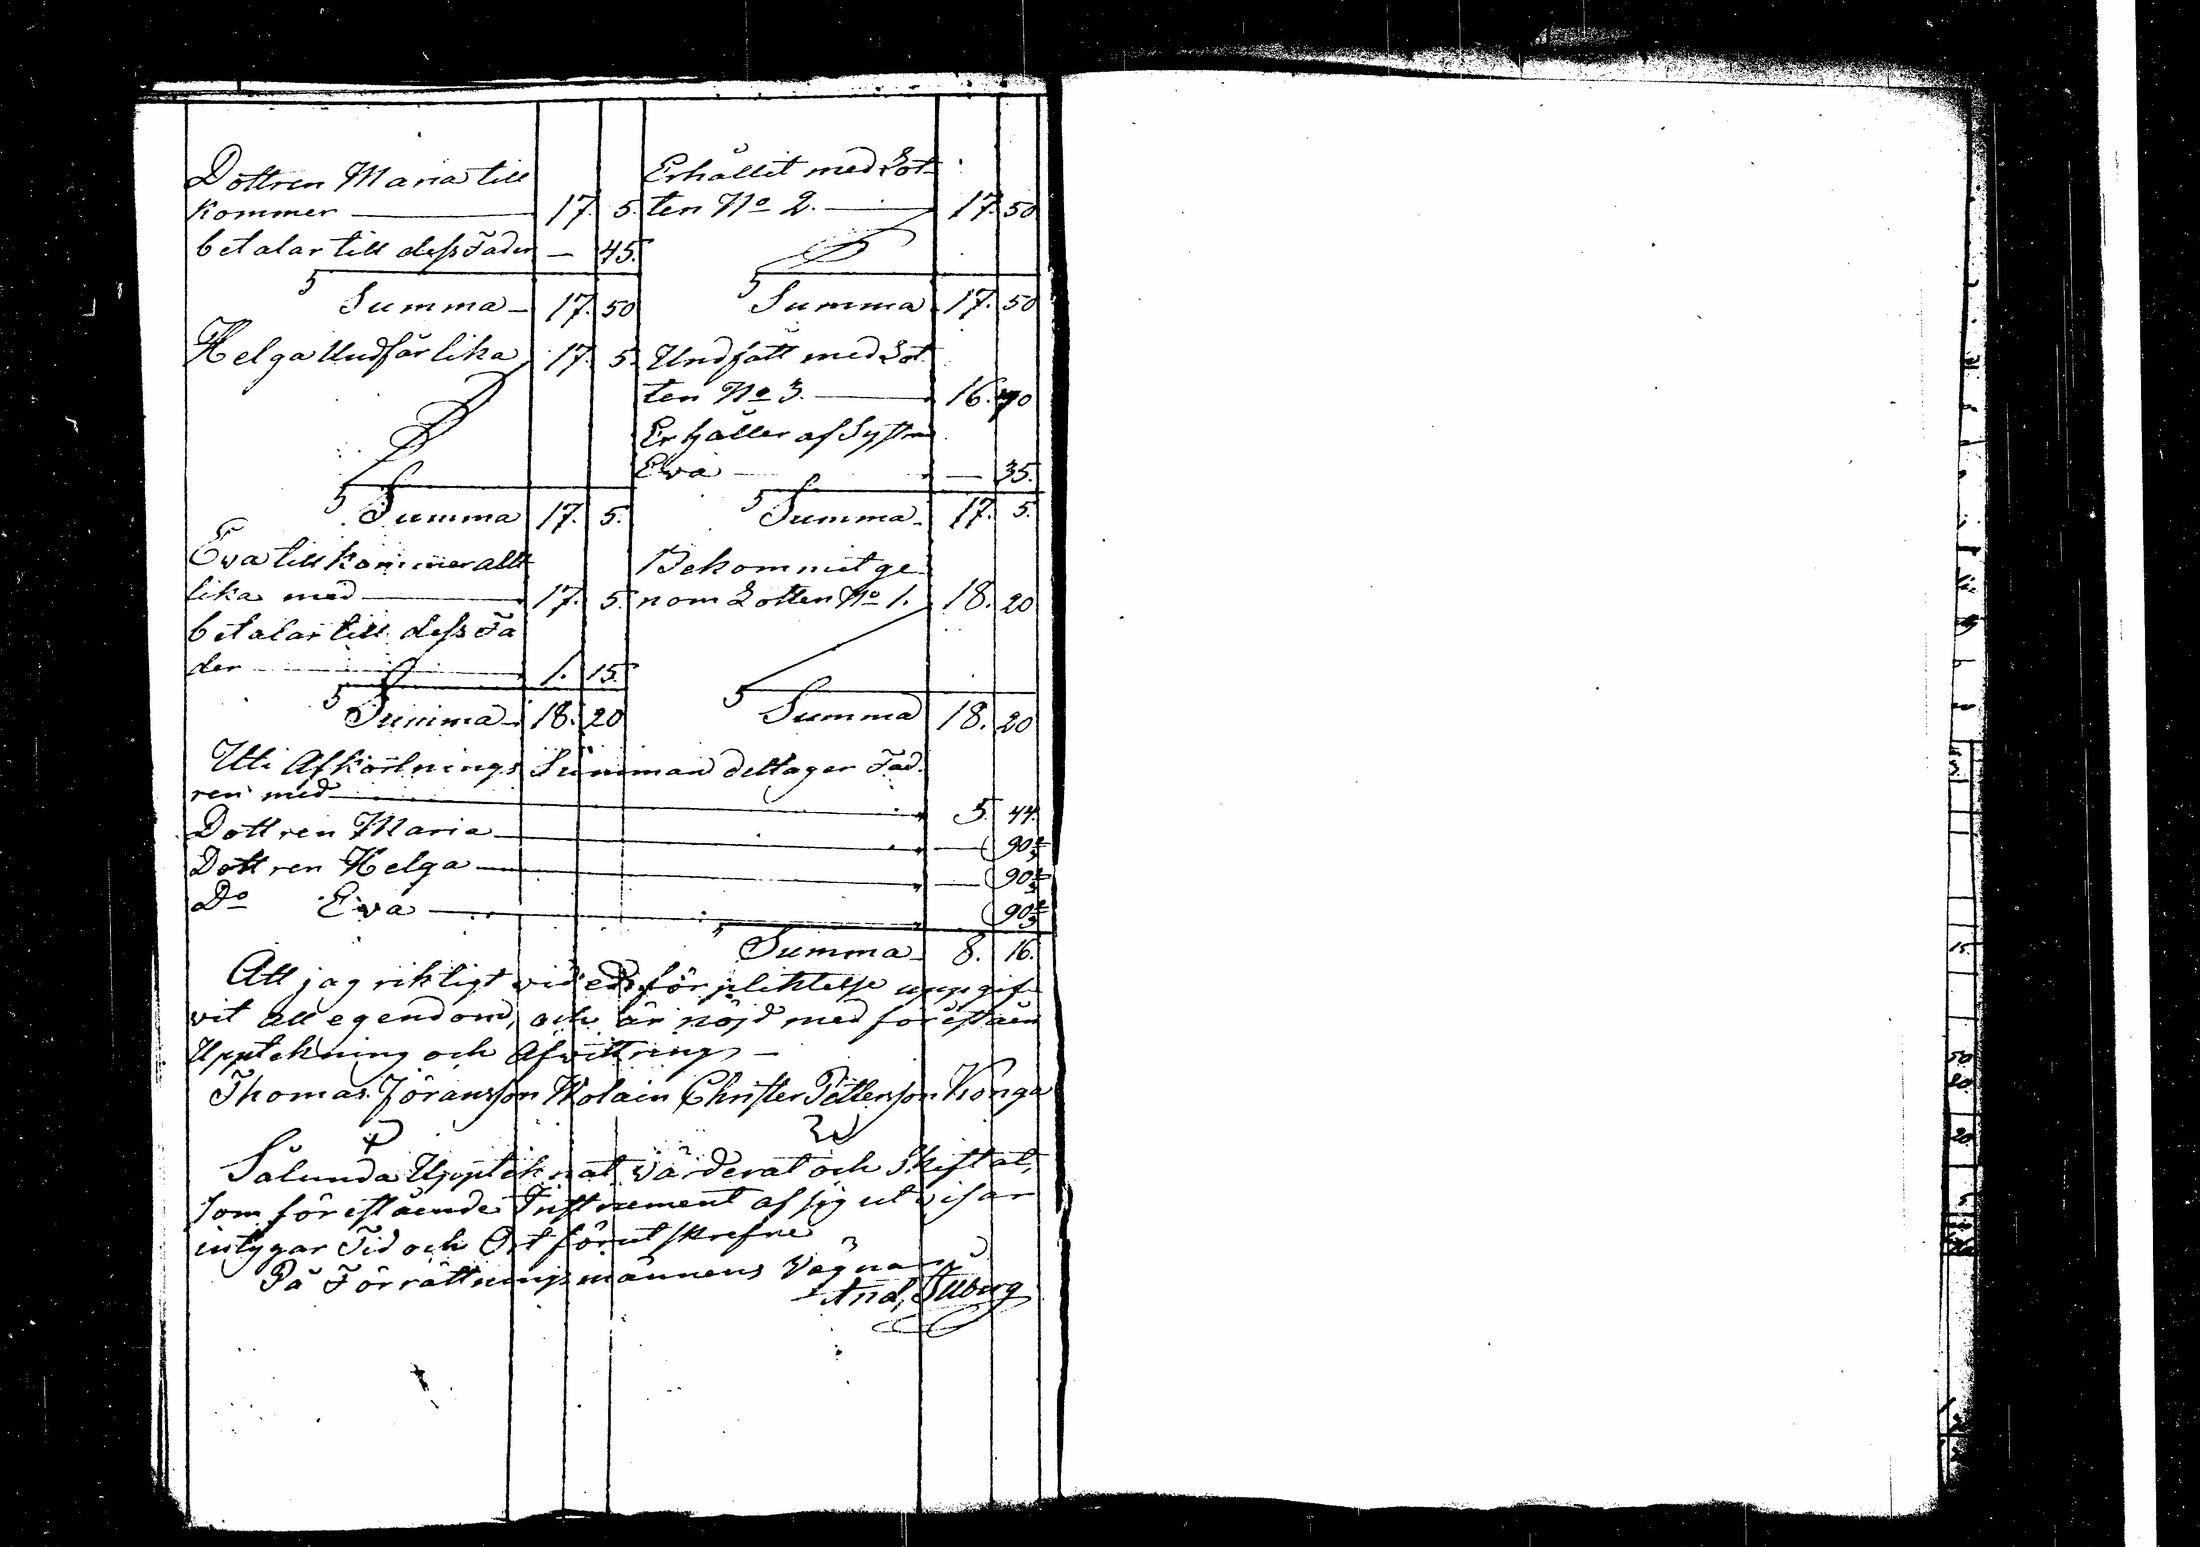 Dottren Maria till
kommer — 17. 5.
betalar till dess Fader — 45.
Summa 17. 50
Helga Undfår lika 17. 5.
Summa 17. 5.
Eva tillkommer allt
lika med — 17. 5.
betalar till dess Fa
der — 1. 15.
Summa 18. 20
Erhållit med Lot
ten No 2. — 17. 50
Summa 17. 50
Undfått med Lot
ten No 3. — 16. 70
Erhåller af Systren
Eva — 35.
Summa 17. 5.
Bekommit ge
nom Lotten No 1. 18. 20
Summa 18. 20
Uti Afkortnings Summan deltager Fad
ren med — 5. 44.
Dottren Maria — 90 2/3
Dottren Helga — 90 2/3
Do Eva — 90 2/3
Summa 8. 16.
Att jag riktigt vid edsförpliktelse uppgif
vit all egendom, och är nöjd med förestående
Upptekning och Afvittring —
Thomas Jöransson Christer Pettersson Konga
Sålunda Uppteknat värderat och Skiftat,
som förestående Instrument af sig utvisar
intygar Tid och Ort förutskrefne
På Förrättningsmännens Vägnar
And,
15.
50
20.
20